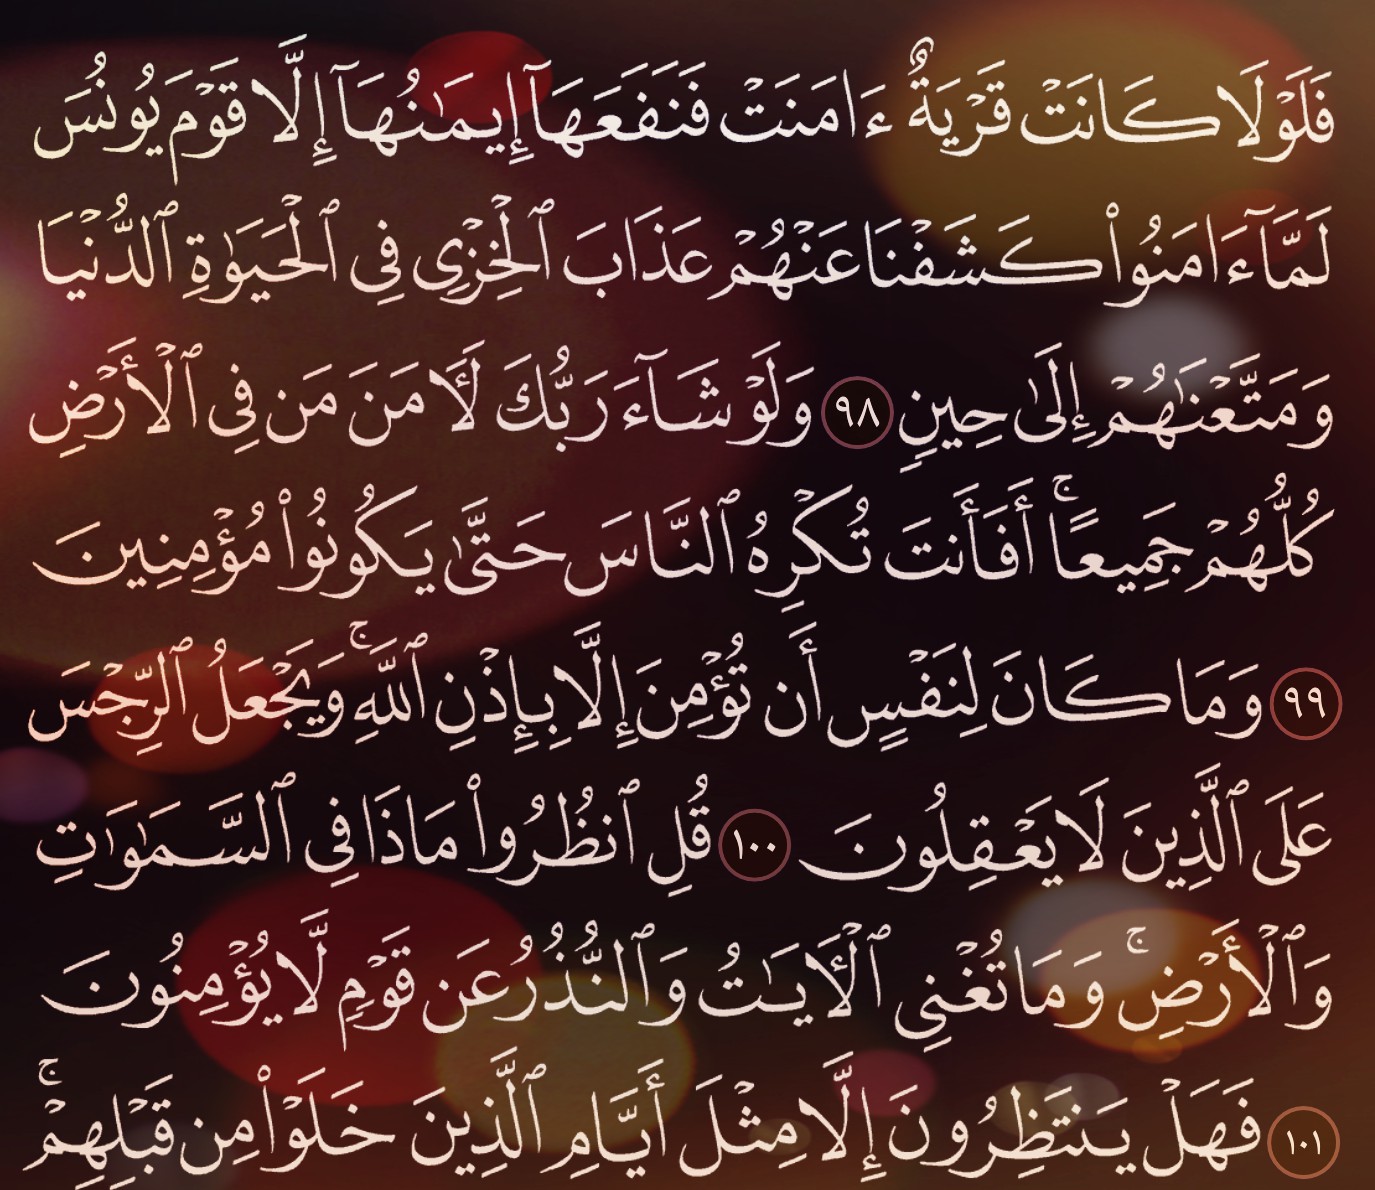 فَلَوْلَا كَانَتْ قَرْيَةٌ ءَامَنَتْ فَنَفَعَهَآ إِيمَٰنُهَآ إِلَّا قَوْمَ يُونُسَ
لَمَّآ ءَامَنُوا۟ كَشَفْنَا عَنْهُمْ عَذَابَ ٱلْخِزْىِ فِى ٱلْحَيَوٰةِ ٱلدُّنْيَا
وَمَتَّعْنَٰهُمْ إِلَىٰ حِينٍ ٩٨ وَلَوْ شَآءَ رَبُّكَ لَءَامَنَ مَن فِى ٱلْأَرْضِ
كُلُّهُمْ جَمِيعًا ۚ أَفَأَنتَ تُكْرِهُ ٱلنَّاسَ حَتَّىٰ يَكُونُوا۟ مُؤْمِنِينَ
٩٩ وَمَا كَانَ لِنَفْسٍ أَن تُؤْمِنَ إِلَّا بِإِذْنِ ٱللَّهِ ۚ وَيَجْعَلُ ٱلرِّجْسَ
عَلَى ٱلَّذِينَ لَا يَعْقِلُونَ ١٠٠ قُلِ ٱنظُرُوا۟ مَاذَا فِى ٱلسَّمَٰوَٰتِ
وَٱلْأَرْضِ ۚ وَمَا تُغْنِى ٱلْءَايَٰتُ وَٱلنُّذُرُ عَن قَوْمٍ لَّا يُؤْمِنُونَ
١٠١ فَهَلْ يَنتَظِرُونَ إِلَّا مِثْلَ أَيَّامِ ٱلَّذِينَ خَلَوْا۟ مِن قَبْلِهِمْ ۚ